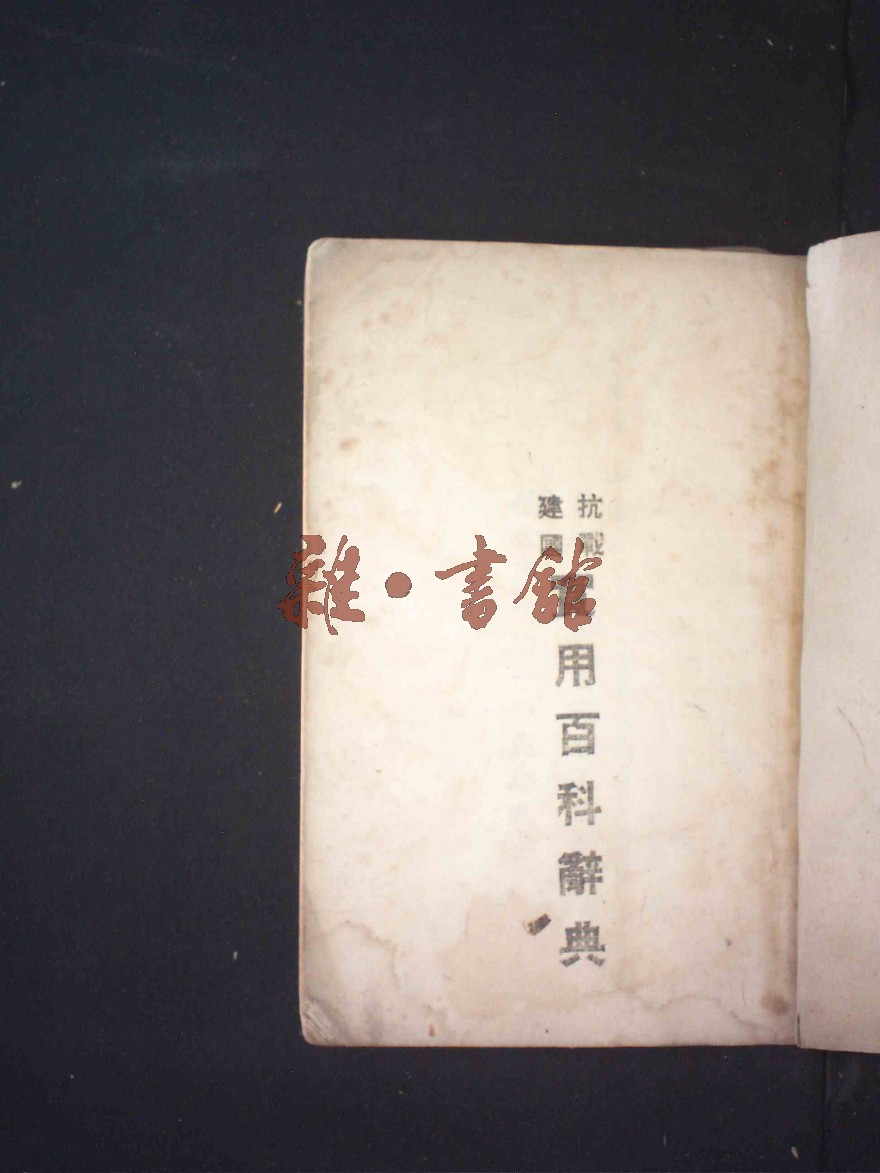 抗戰
建國
用百科辭典
雜·書館